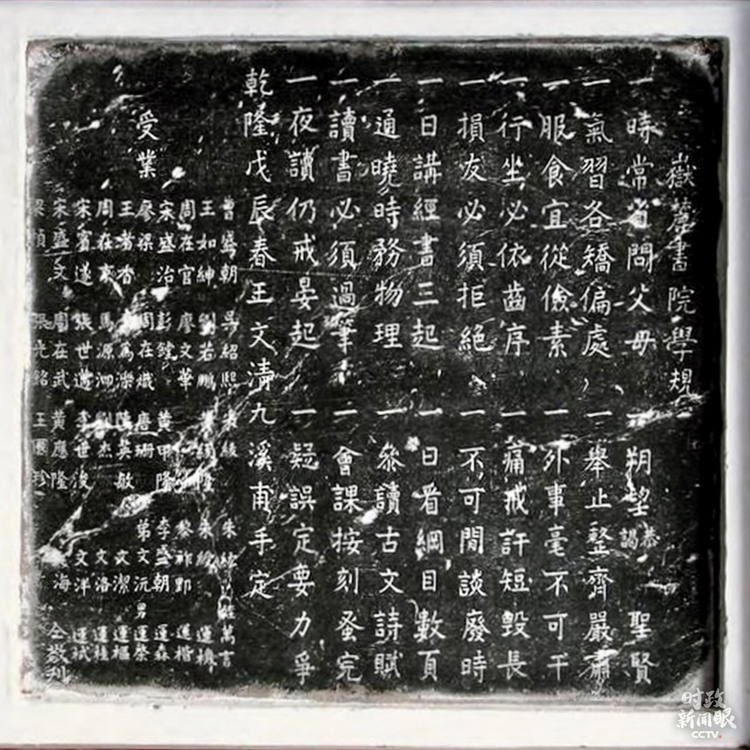 嶽麓書院學規
一時常省問父母 一朔望恭謁 聖賢
一氣習各矯偏處 一舉止整齊嚴肅
一服食宜從儉素 一外事毫不可干
一行坐必依齒序 一痛戒訐短毀長
一損友必須拒絕 一不可閒談廢時
一日講經書三起 一日看綱目數頁
一通曉時務物理 一參讀古文詩賦
一讀書必須過筆 一會課按刻蚤完
一夜讀仍戒晏起 一疑誤定要力爭
乾隆戊辰春王文清九溪甫手定
受業
曹盛朝 吳紹熙 綾 朱 萬言
王如紳 劉若鵬 隆 朱 運
周在官 廖文華 黎祚野 運楷
宋盛治 彭鍠 黃甲隆 李盛朝 運森
廖梁 周在熾 唐珊 弟文沅 男運榮
王者香 為濼 陳英敏 文潔 運樞
周在 馬源泗 杰 文洛 運桂
宋賓遂 張世適 李世俊 文洋 運斌
宋盛文 周在武 黃應隆 海 仝敬刊
梁楨 梁光銘 王國珍
时政
新闻眼
CCTV